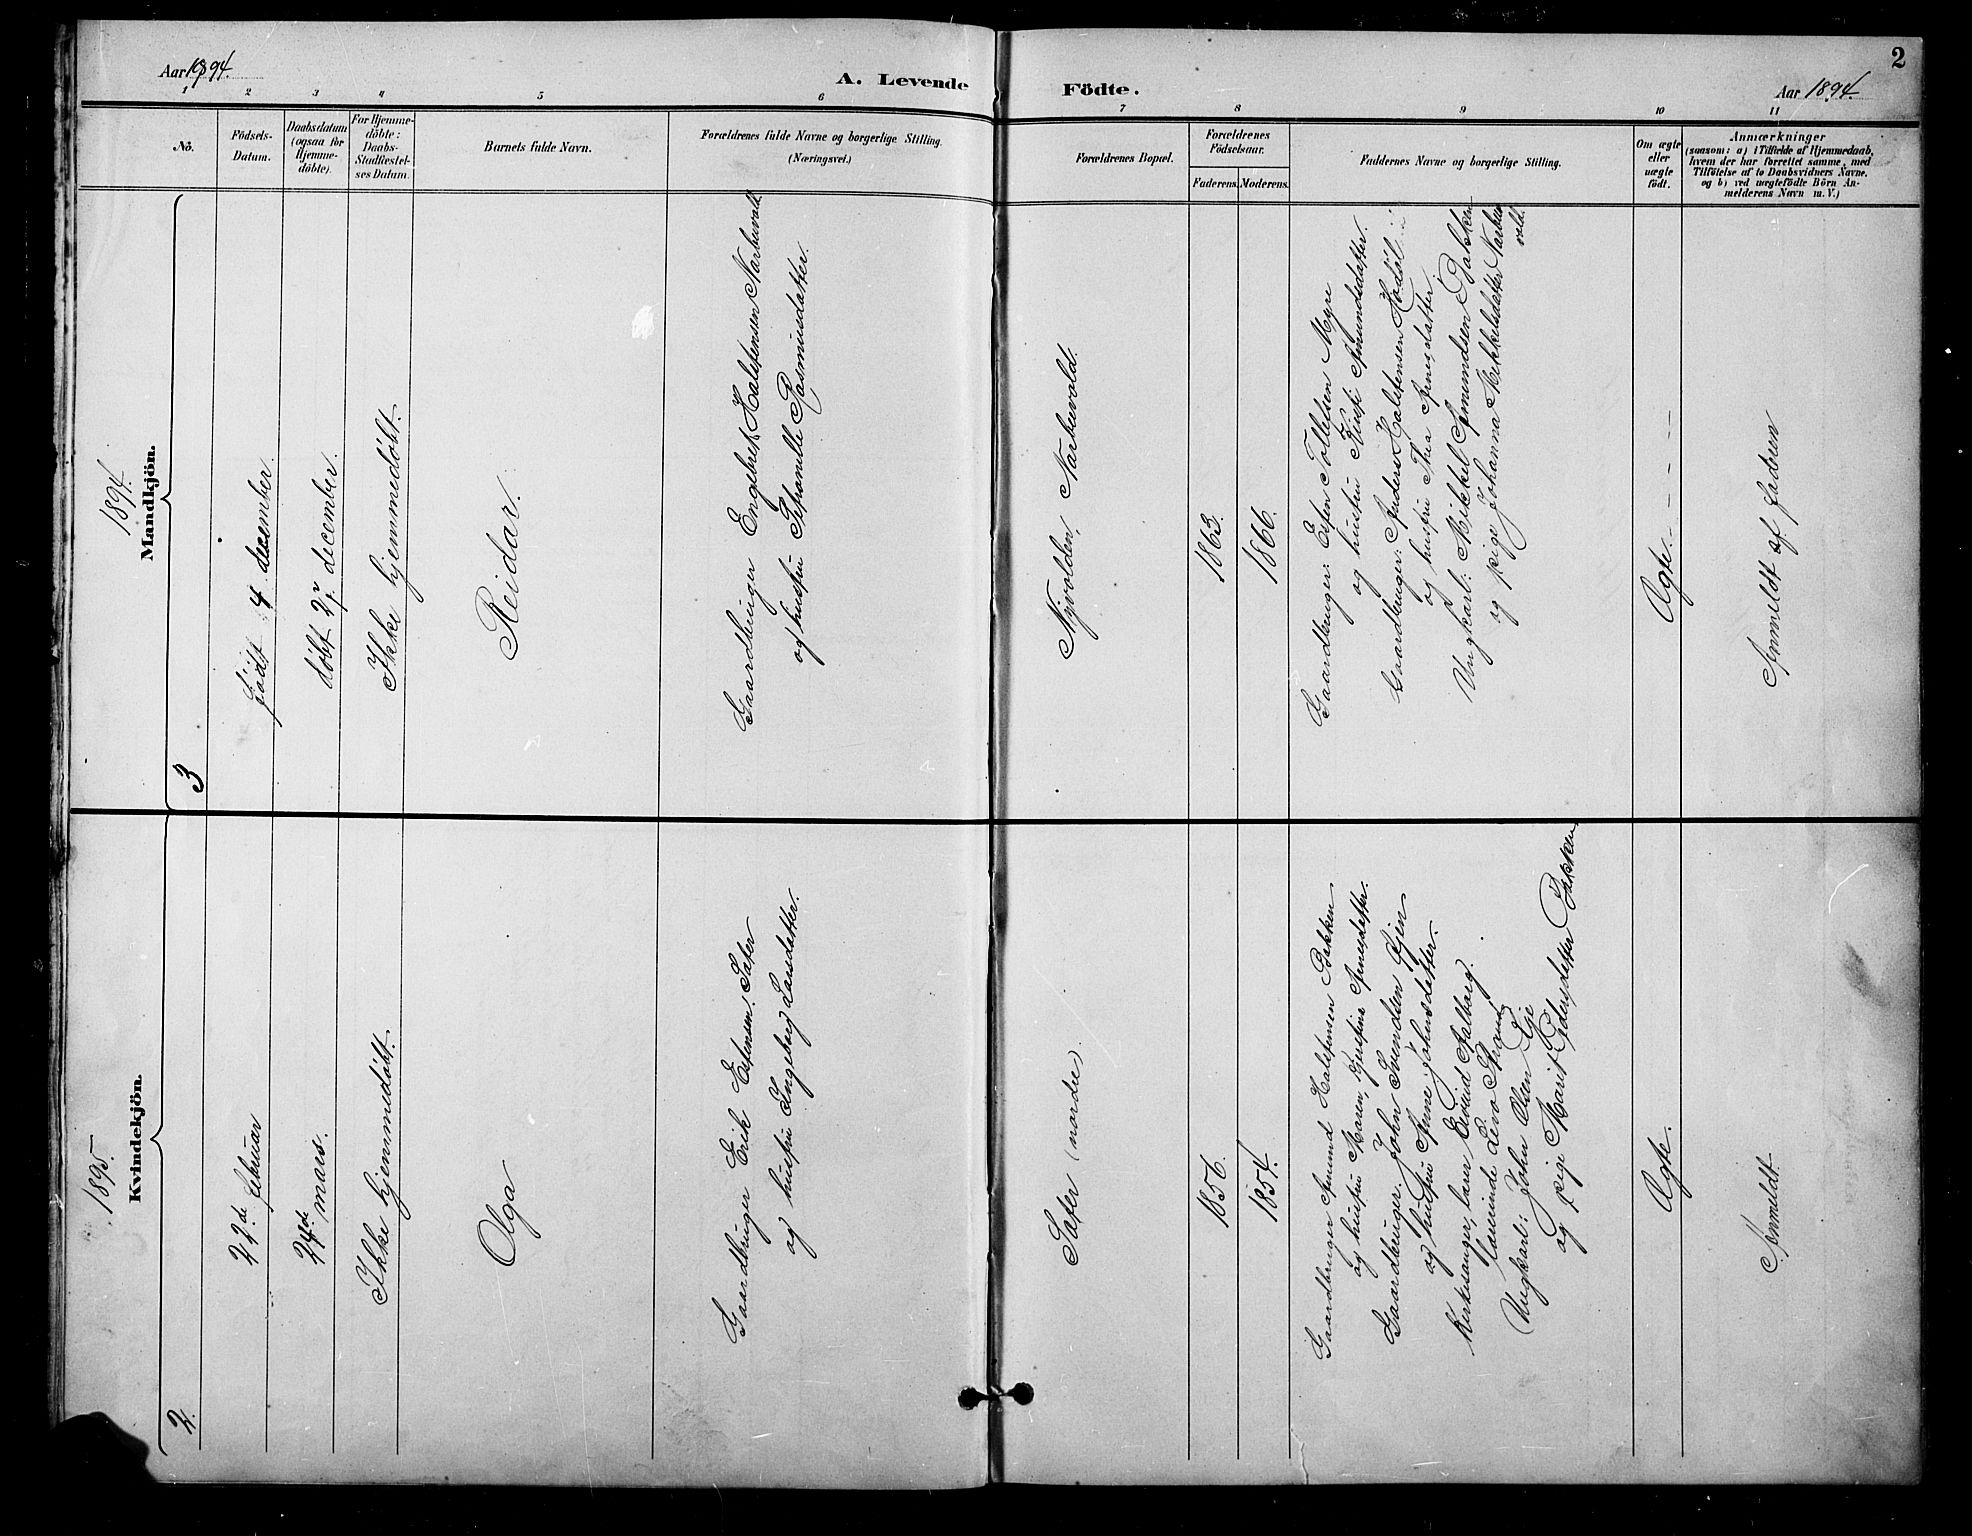 Aar 1894.
A. Levende Födte.
Aar 1894.
2
1
2
3
4
5
6
7
8
9
10
11
No.
Födsels-
Datum.
Daabsdatum
(ogsaa for
Hjemme-
döbte).
For Hjemme-
döbte:
Daabs-
Stadfæstel-
ses Datum.
Barnets fulde Navn.
Forældrenes fulde Navne og borgerlige Stilling.
(Næringsvei.)
Forældrenes Bopæl.
Forældrenes
Födselsaar.
Faderens.
Moderens.
Faddernes Navne og borgerlige Stilling.
Om ægte
eller
uægte
födt.
Anmærkninger
(saasom: a) i Tilfælde af Hjemmedaab,
hvem der har forrettet samme, med
Tilföielse af to Daabsvidners Navne,
og b) ved uægtefödte Börn An-
melderens Navn m. V.)
1894.
Mandkjön.
3
födt 4 december
döbt 27 december.
Ikke hjemmedöbt.
Reidar.
Gaardbruger Engebret Halstensen Narbuvold
og hustru Pernille Rasmusdatter
Nyvolden, Narbuvold.
1863.
1866.
Gaardbruger: Esten Tollefsen Myre
og hustru Amundsdatter.
Gaardbruger: Anders Halstensen
og hustru Arnesdatter.
Ungkarl: Mikkel Amundsen Bakken
og pige Johanna Mikkelsdatter Narbu-
vold.
Ægte. - - - -
Anmeldt af faderen
1895.
Kvindekjön.
2.
22de februar
24de mars.
Ikke hjemmedöbt.
Olga
Gaardbruger Erik Estensen Sæter
og hustru Ingeborg Larsdatter.
Sæter (nordre)
1856.
1854.
Gaardbruger Amund Halstensen Bakken
og hustru Maren Arnesdatter.
Gaardbruger. John Svendsen
og hustru Anne Johnsdatter.
Kirkesanger, lærer Eivind Aalborg.
Ungkarl: John Olsen
og pige Marit Pedersdatter Bakken.
Ægte.
Anmeldt.